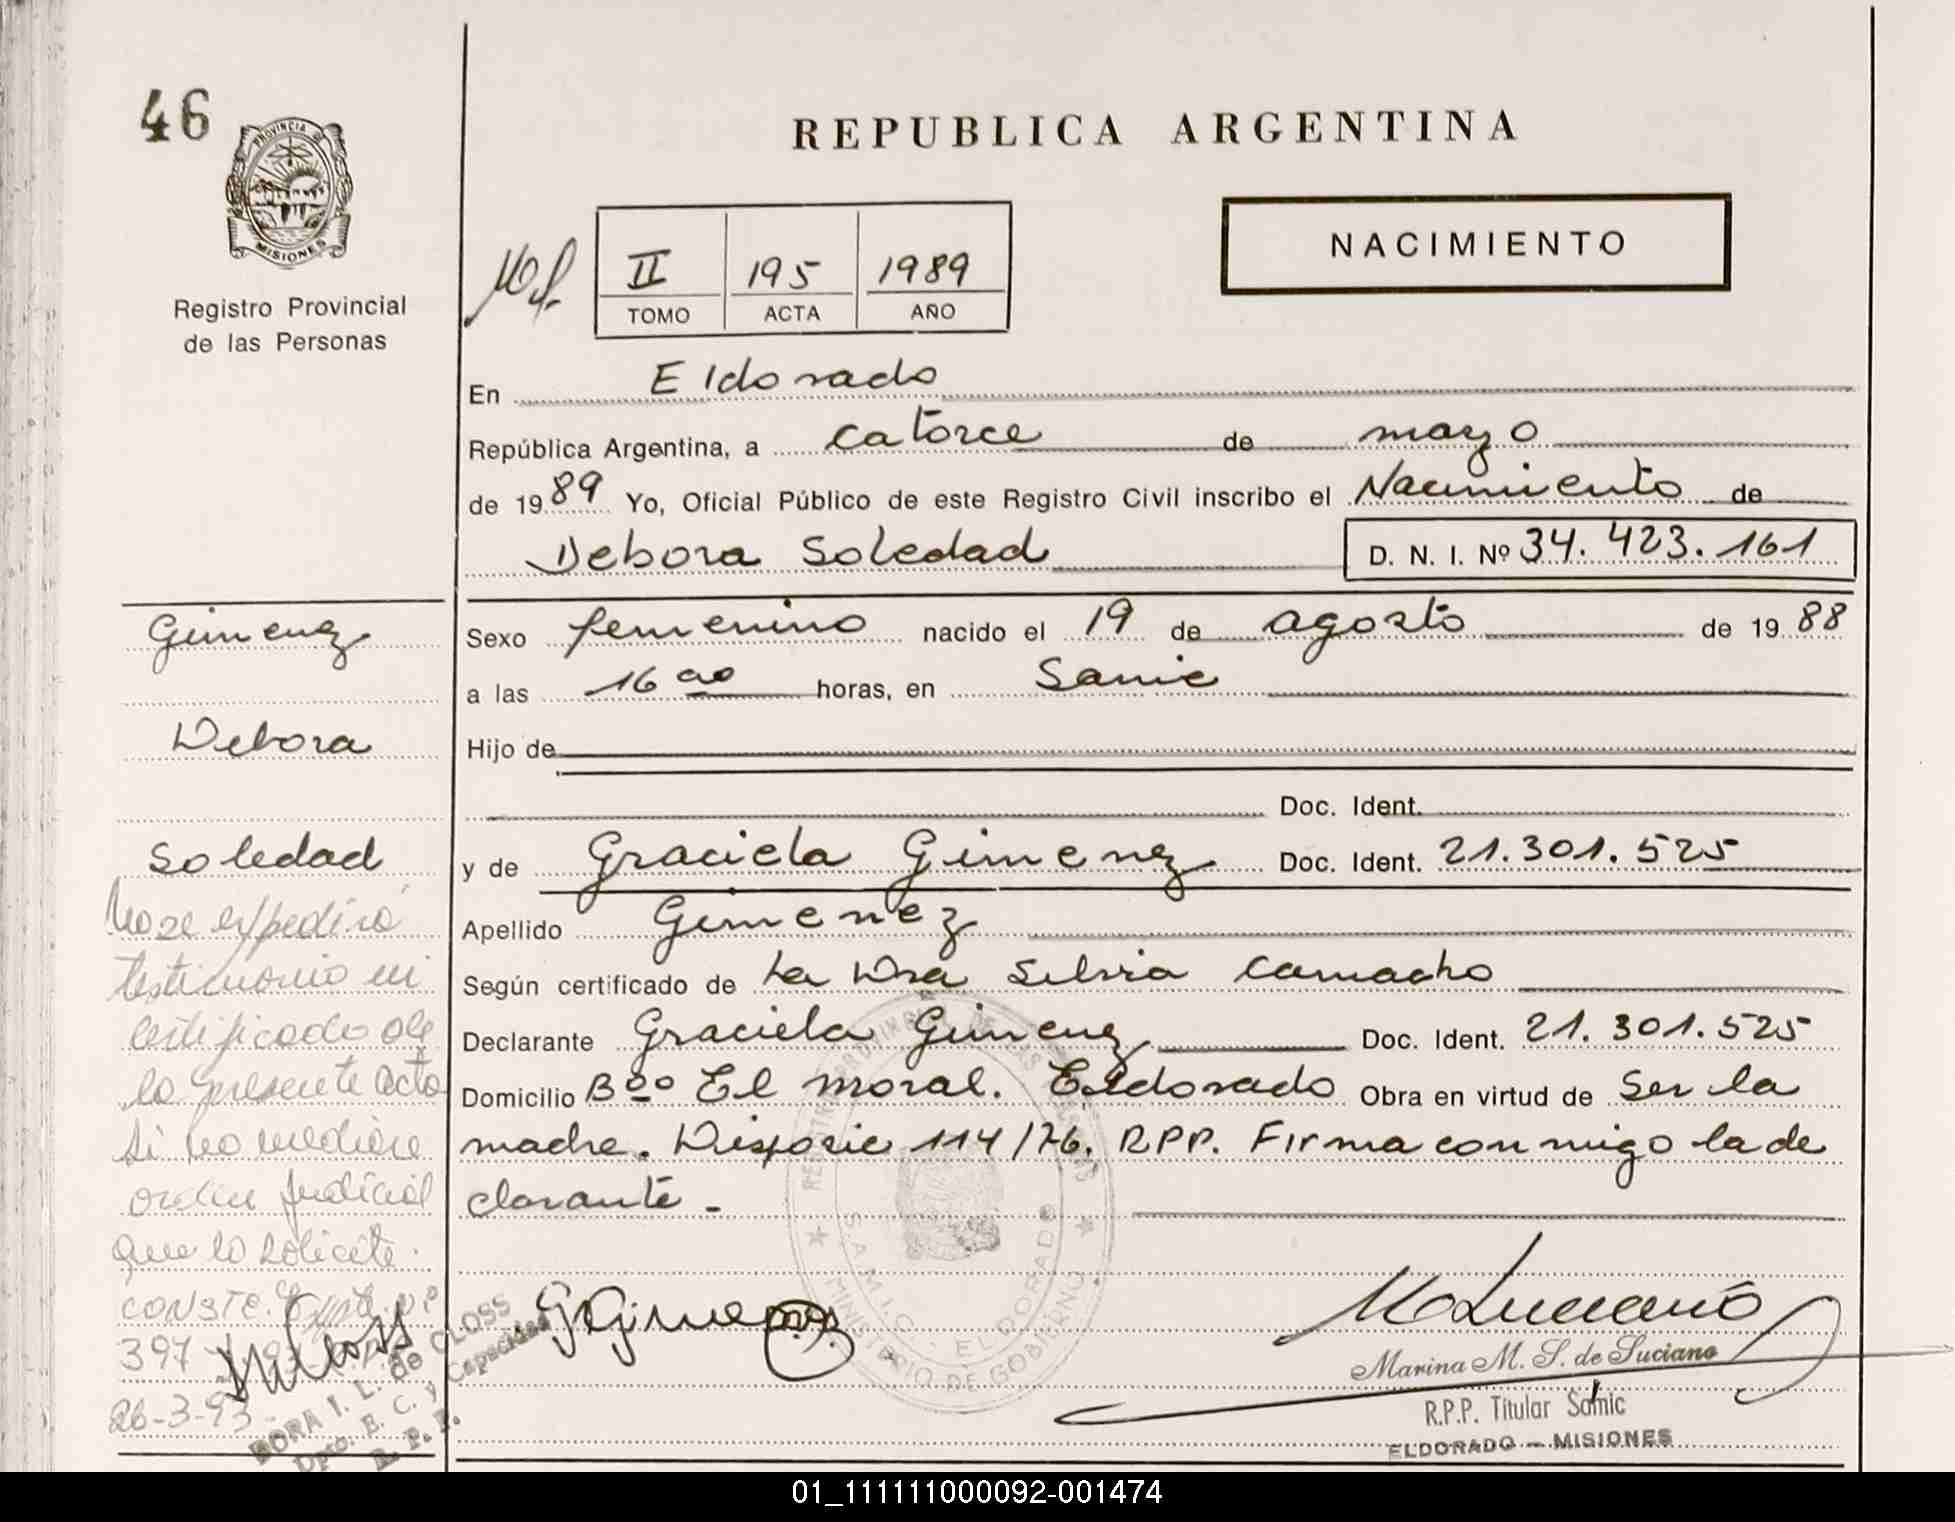 46
PROVINCIA DE
MISIONES
Registro Provincial
de las Personas
REPUBLICA ARGENTINA
NACIMIENTO
II 195 1989
TOMO ACTA AÑO
En Eldorado
República Argentina, a catorce de mayo
de 1989 Yo, Oficial Público de este Registro Civil inscribo el Nacimiento de
Debora Soledad D. N. I. Nº 34.423.161
Gimenez
Debora
Soledad
Sexo femenino nacido el 19 de agosto de 1988
a las 16 oo horas, en Samic
Hijo de
Doc. Ident.
y de Graciela Gimenez Doc. Ident. 21.301.525
Apellido Gimenez
Según certificado de La Dra Silvia Camacho
Declarante Graciela Gimenez Doc. Ident. 21.301.525
Domicilio Bºº El moral. Eldorado Obra en virtud de Ser la
madre. Disposic 114/76. RPP. Firma conmigo la de
clarante.-
No se expedirá
testimonio ni
certificado de
la presente acta
si no mediere
orden judicial
que lo solicite.
CONSTE. Expte. nº
397
26-3-93
DORA I. L. de CLOSS
Dpto. E. C. y Capacidad
R. P. P.
G Gimenez
S.A.M.I.C. - ELDORADO
MINISTERIO DE GOBIERNO
M Luciano
Marina M. S. de Luciano
R.P.P. Titular Samic
ELDORADO - MISIONES
01_111111000092-001474